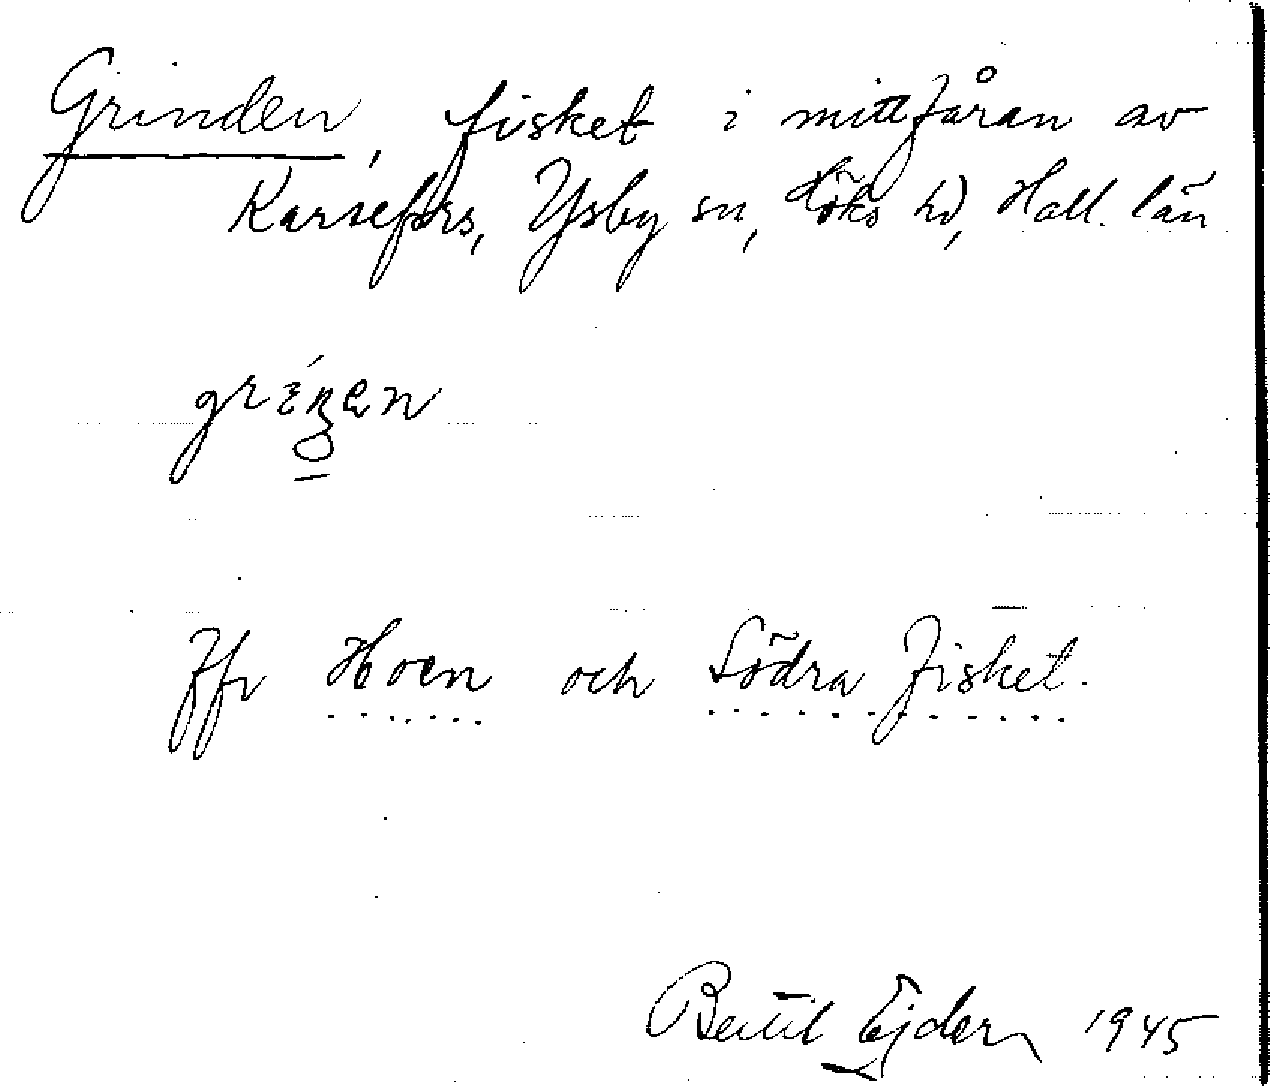 Grinden, fisket i mittfåran av
Karsefors, Ysby sn, Höks hd, Hall. län
Jfr Hoen och Södra fisket.
Bertil Ejder 1945